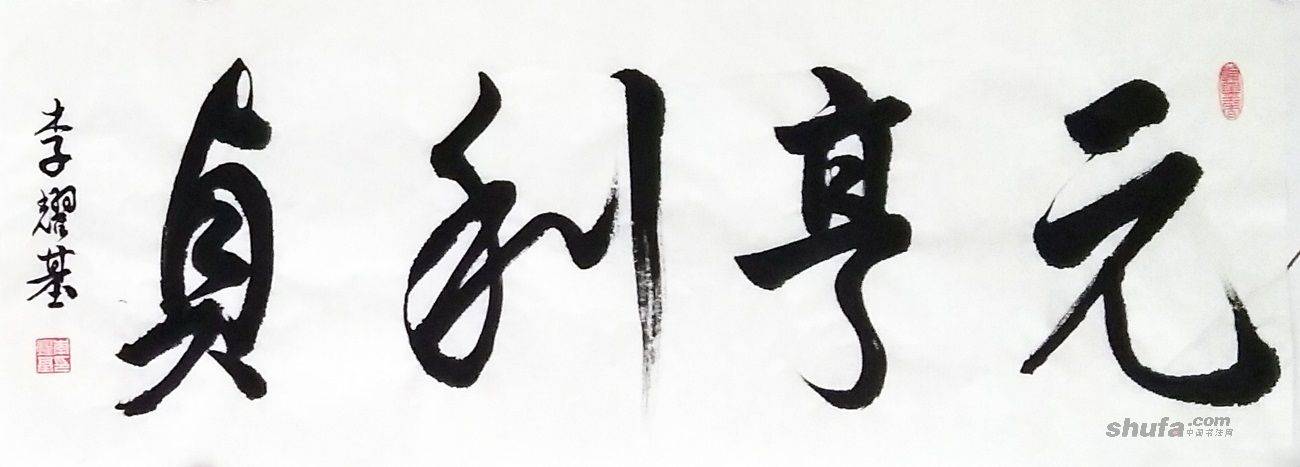 元亨利貞
李耀基
shufa.com
中国书法网